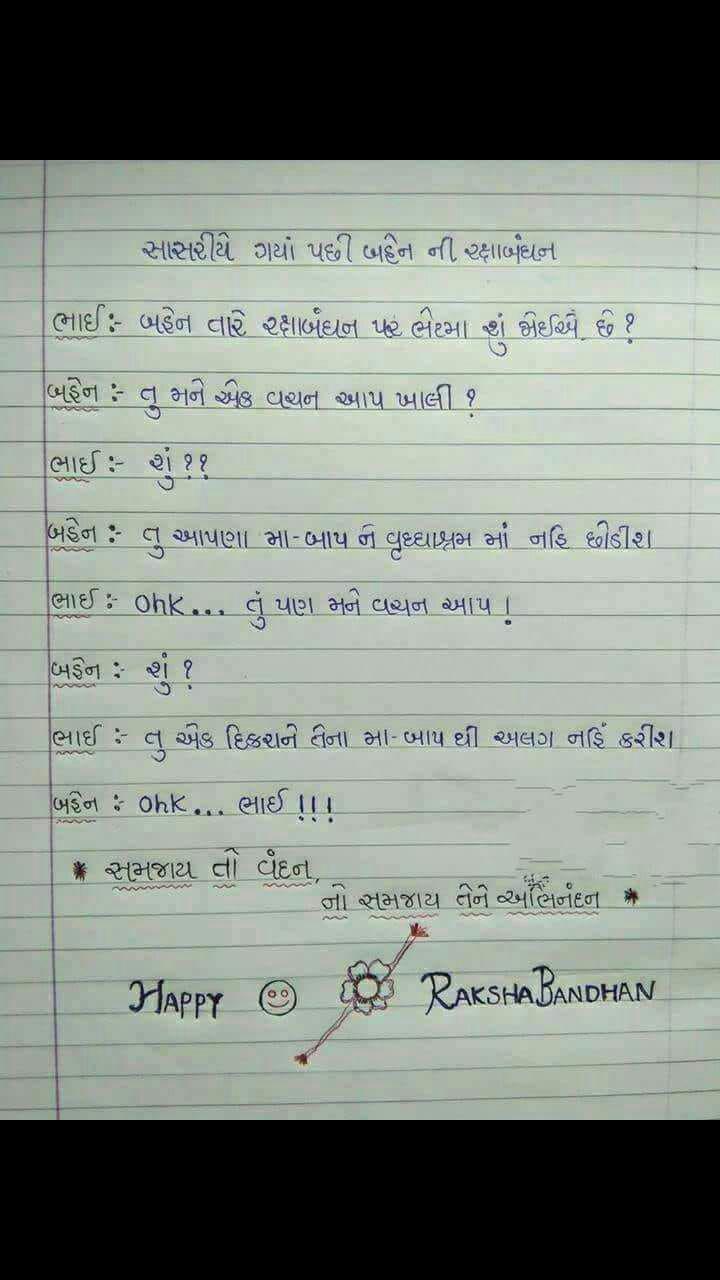 સાસરીયે ગયાં પછી બહેન ની રક્ષાબંધન
ભાઈ :- બહેન તારે રક્ષાબંધન પર ભેટમા શું જોઈએ છે ?
બહેન :- તુ મને એક વચન આપ ખાલી ?
ભાઈ :- શું ??
બહેન :- તુ આપણા મા-બાપ ને વૃધ્ધાશ્રમ માં નહિ છોડીશ
ભાઈ :- Ohk... તું પણ મને વચન આપ !
બહેન :- શું ?
ભાઈ :- તુ એક દિકરાને તેના મા-બાપ થી અલગ નહિં કરીશ
બહેન :- Ohk... ભાઈ !!!
* સમજાય તો વંદન,
નો સમજાય તેને અભિનંદન *
HAPPY RAKSHABANDHAN